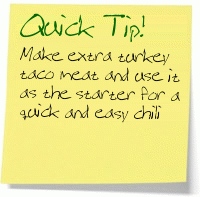 Quick Tip!
Make extra turkey
taco meat and use it
as the starter for a
quick and easy chili